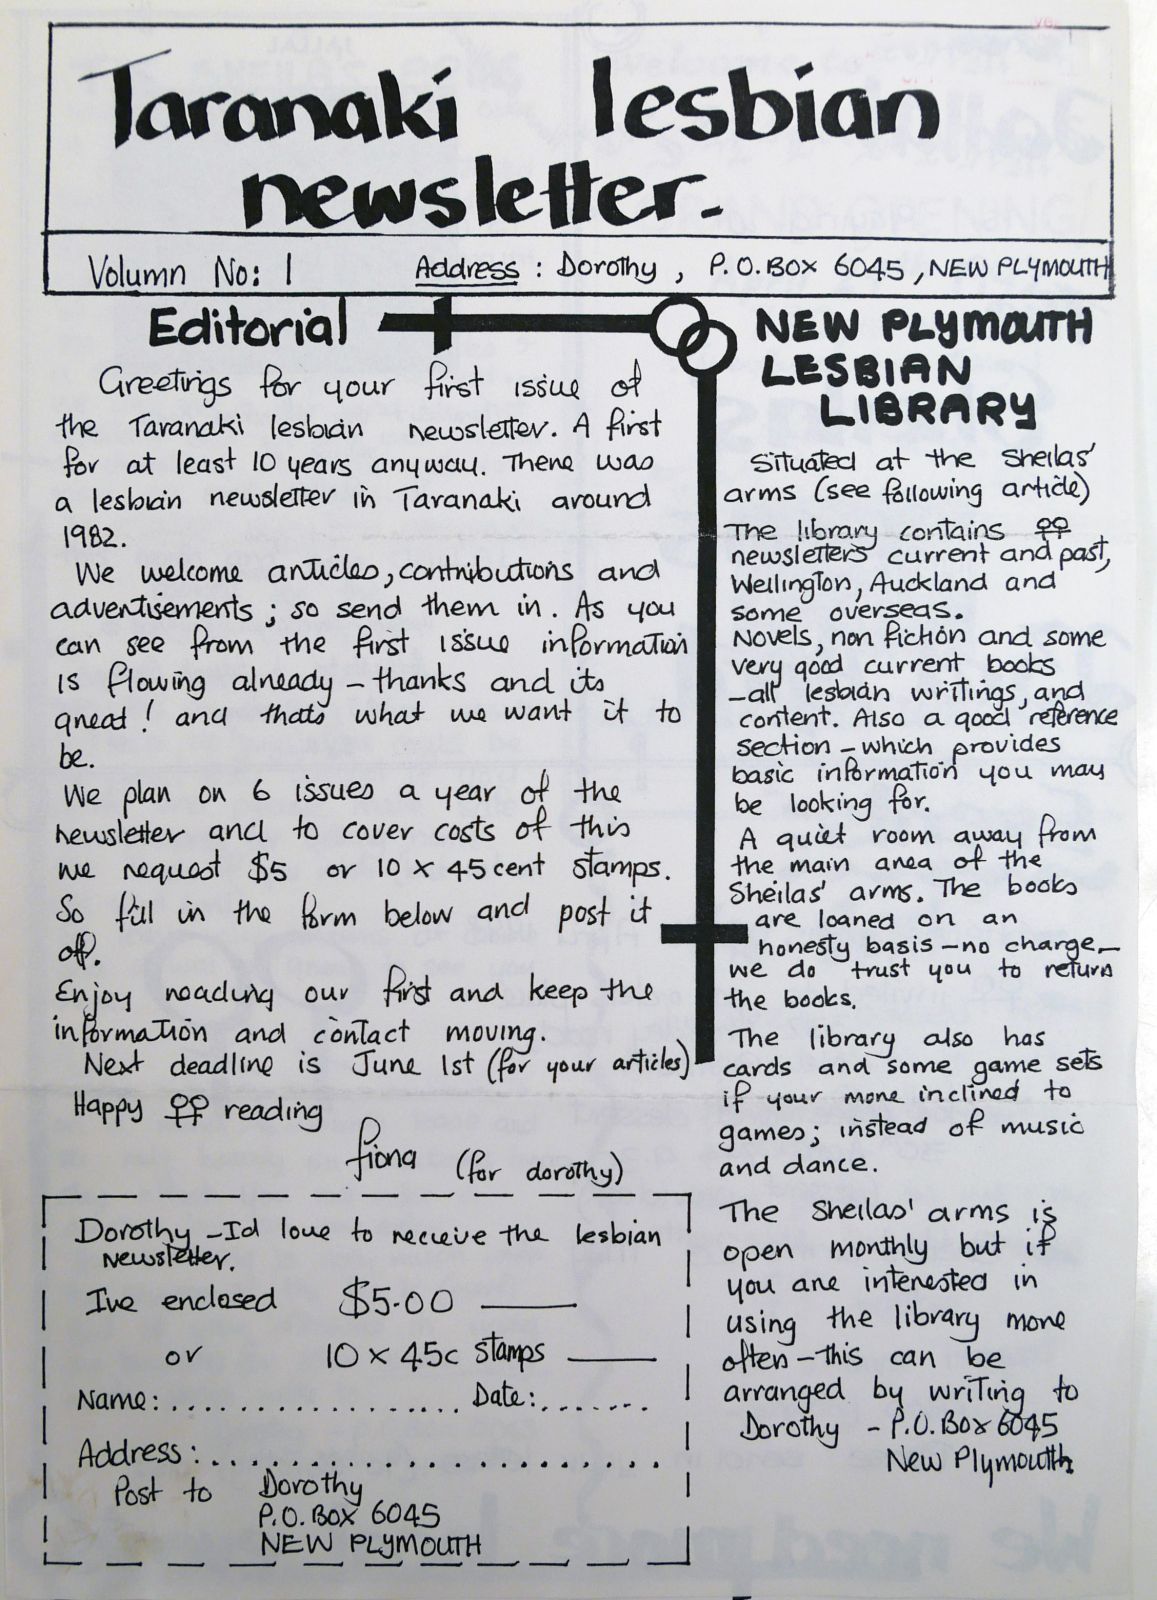 Taranaki lesbian
newsletter.
Volumn No: 1 Address : Dorothy, P.O.BOX 6045, NEW PLYMOUTH
Editorial
Greetings for your first issue of
the Taranaki lesbian newsletter. A first
for at least 10 years anyway. There was
a lesbian newsletter in Taranaki around
1982.
We welcome articles, contributions and
advertisements; so send them in. As you
can see from the first issue information
is flowing already - thanks and its
great! and thats what we want it to
be.
We plan on 6 issues a year of the
newsletter and to cover costs of this
we request $5 or 10 x 45 cent stamps.
So fill in the form below and post it
off.
Enjoy reading our first and keep the
information and contact moving.
Next deadline is June 1st (for your articles)
Happy ♀♀ reading
fiona (for dorothy)
Dorothy - Id love to recieve the lesbian
newsletter.
Ive enclosed $5.00 ____
or 10 x 45c stamps ____
Name: .................. Date: .......
Address: ........................
Post to Dorothy
P.O. BOX 6045
NEW PLYMOUTH
NEW PLYMOUTH
LESBIAN
LIBRARY
Situated at the Sheilas'
arms (see following article)
The library contains ♀♀
newsletters current and past,
Wellington, Auckland and
some overseas.
Novels, non fiction and some
very good current books
- all lesbian writings, and
content. Also a good reference
section - which provides
basic information you may
be looking for.
A quiet room away from
the main area of the
Sheilas' arms. The books
are loaned on an
honesty basis - no charge -
we do trust you to return
the books.
The library also has
cards and some game sets
if your more inclined to
games; instead of music
and dance.
The Sheilas' arms is
open monthly but if
you are interested in
using the library more
often - this can be
arranged by writing to
Dorothy - P.O. Box 6045
New Plymouth